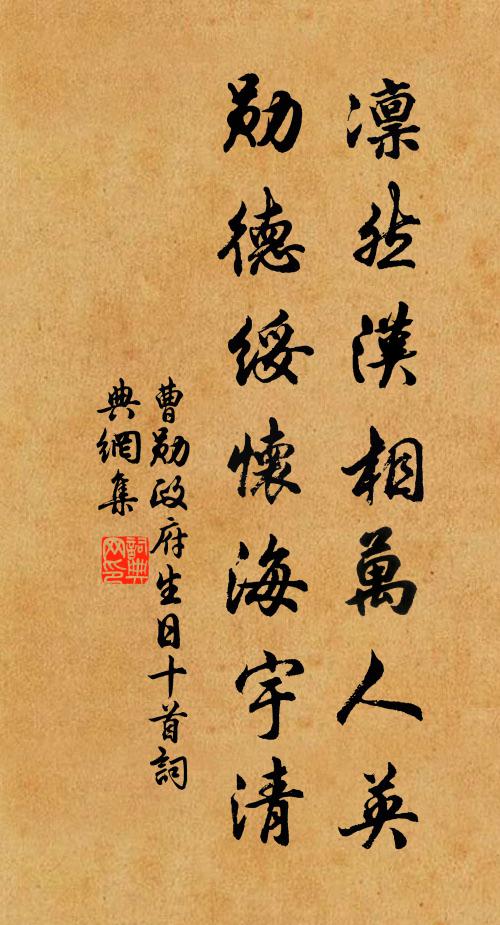 凛然漢相萬人英
勛德綏懷海宇清
曹勛政府生日十首詞
典網集
詞典
网印